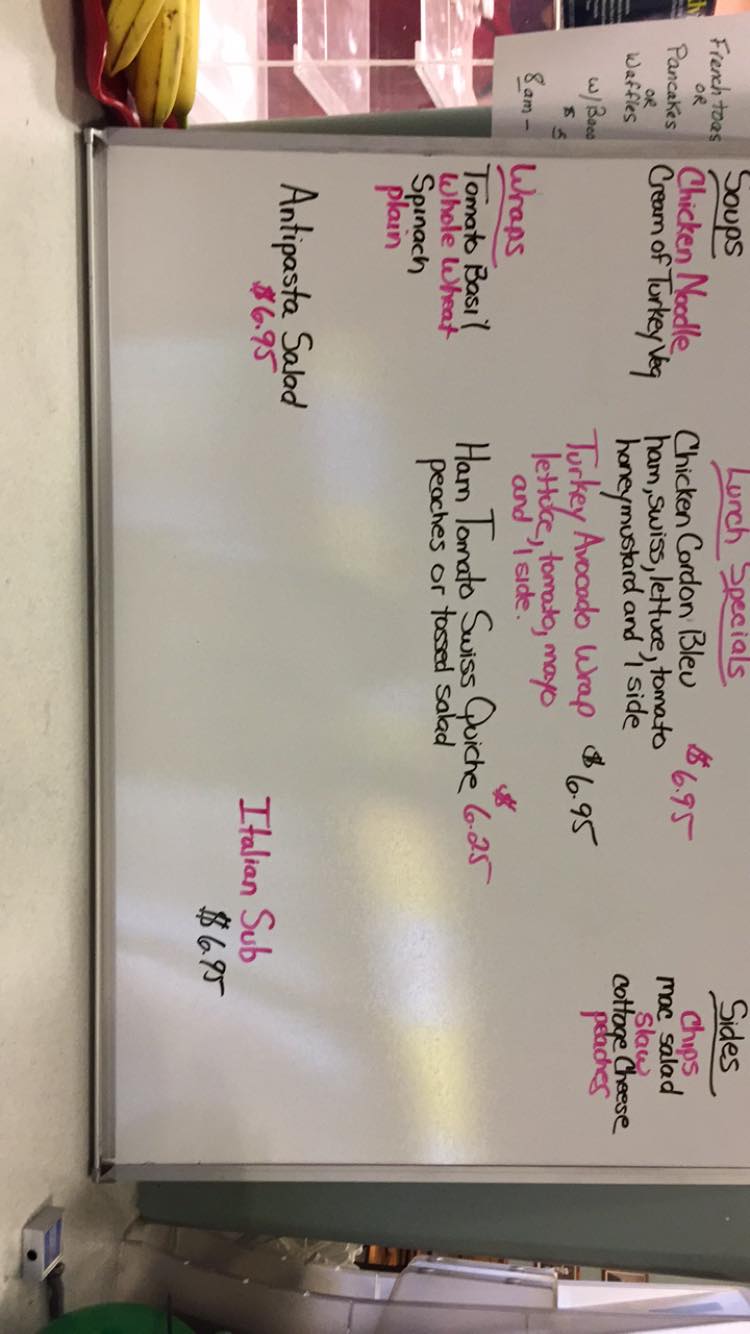 French toas
OR
Pancakes
OR
Waffles
w/Baco
$ 5
8am -
Soups
Chicken Noodle
Cream of Turkey Veg
Wraps
Tomato Basil
Whole Wheat
Spinach
plain
Antipasta Salad
$6.95
Lunch Specials
Chicken Cordon Bleu $6.95
ham, swiss, lettuce, tomato
honeymustard and 1 side
Turkey Avocado Wrap $6.95
lettuce, tomato, mayo
and 1 side.
Ham Tomato Swiss Quiche $6.25
peaches or tossed salad
Italian Sub
$6.95
Sides
Chips
mac salad
Slaw
cottage Cheese
peaches